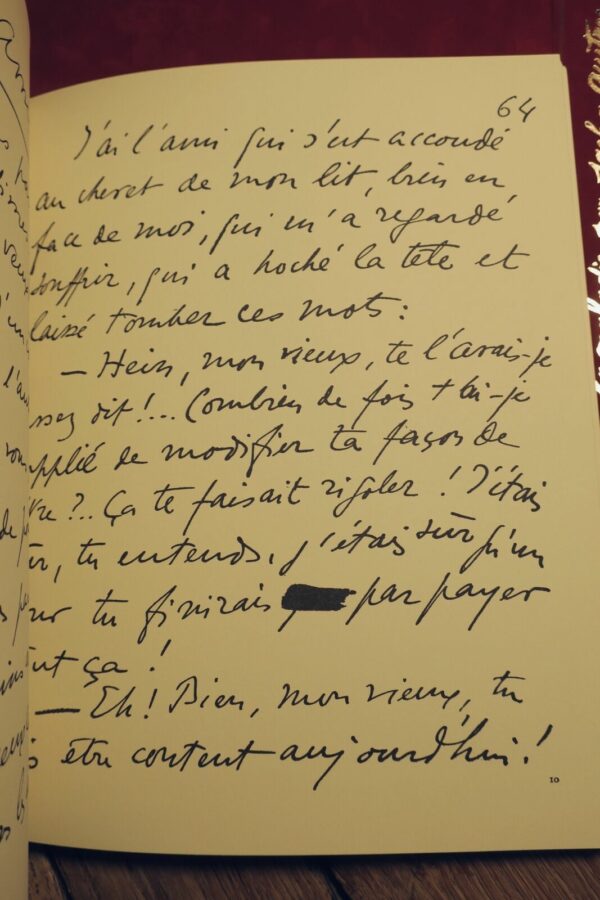 64
J'ai l'ami qui s'est accoudé
au chevet de mon lit, bien en
face de moi, qui m'a regardé
souffrir, qui a hoché la tête et
laissé tomber ces mots :
— Hein, mon vieux, te l'avais-je
ssez dit !... Combien de fois t'ai-je
pplié de modifier ta façon de
vre ?.. Ça te faisait rigoler ! J'étais
ûr, tu entends, j'étais sûr qu'un
our tu finirais par payer
out ça !
— Eh ! Bien, mon vieux, tu
is être content aujourd'hui !
10